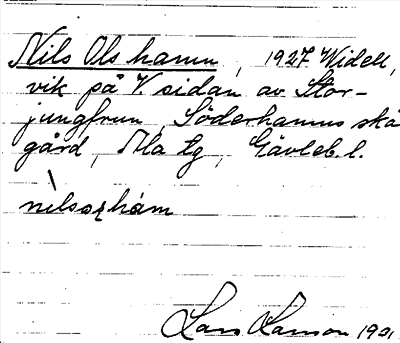 Nils Ols hamn, 1927 Widell,
vik på V. sidan av Stor-
jungfrun, Söderhamns skä
gård, Ala tg, Gävleb. l.
nilsoʂham
Lars Larsson 19